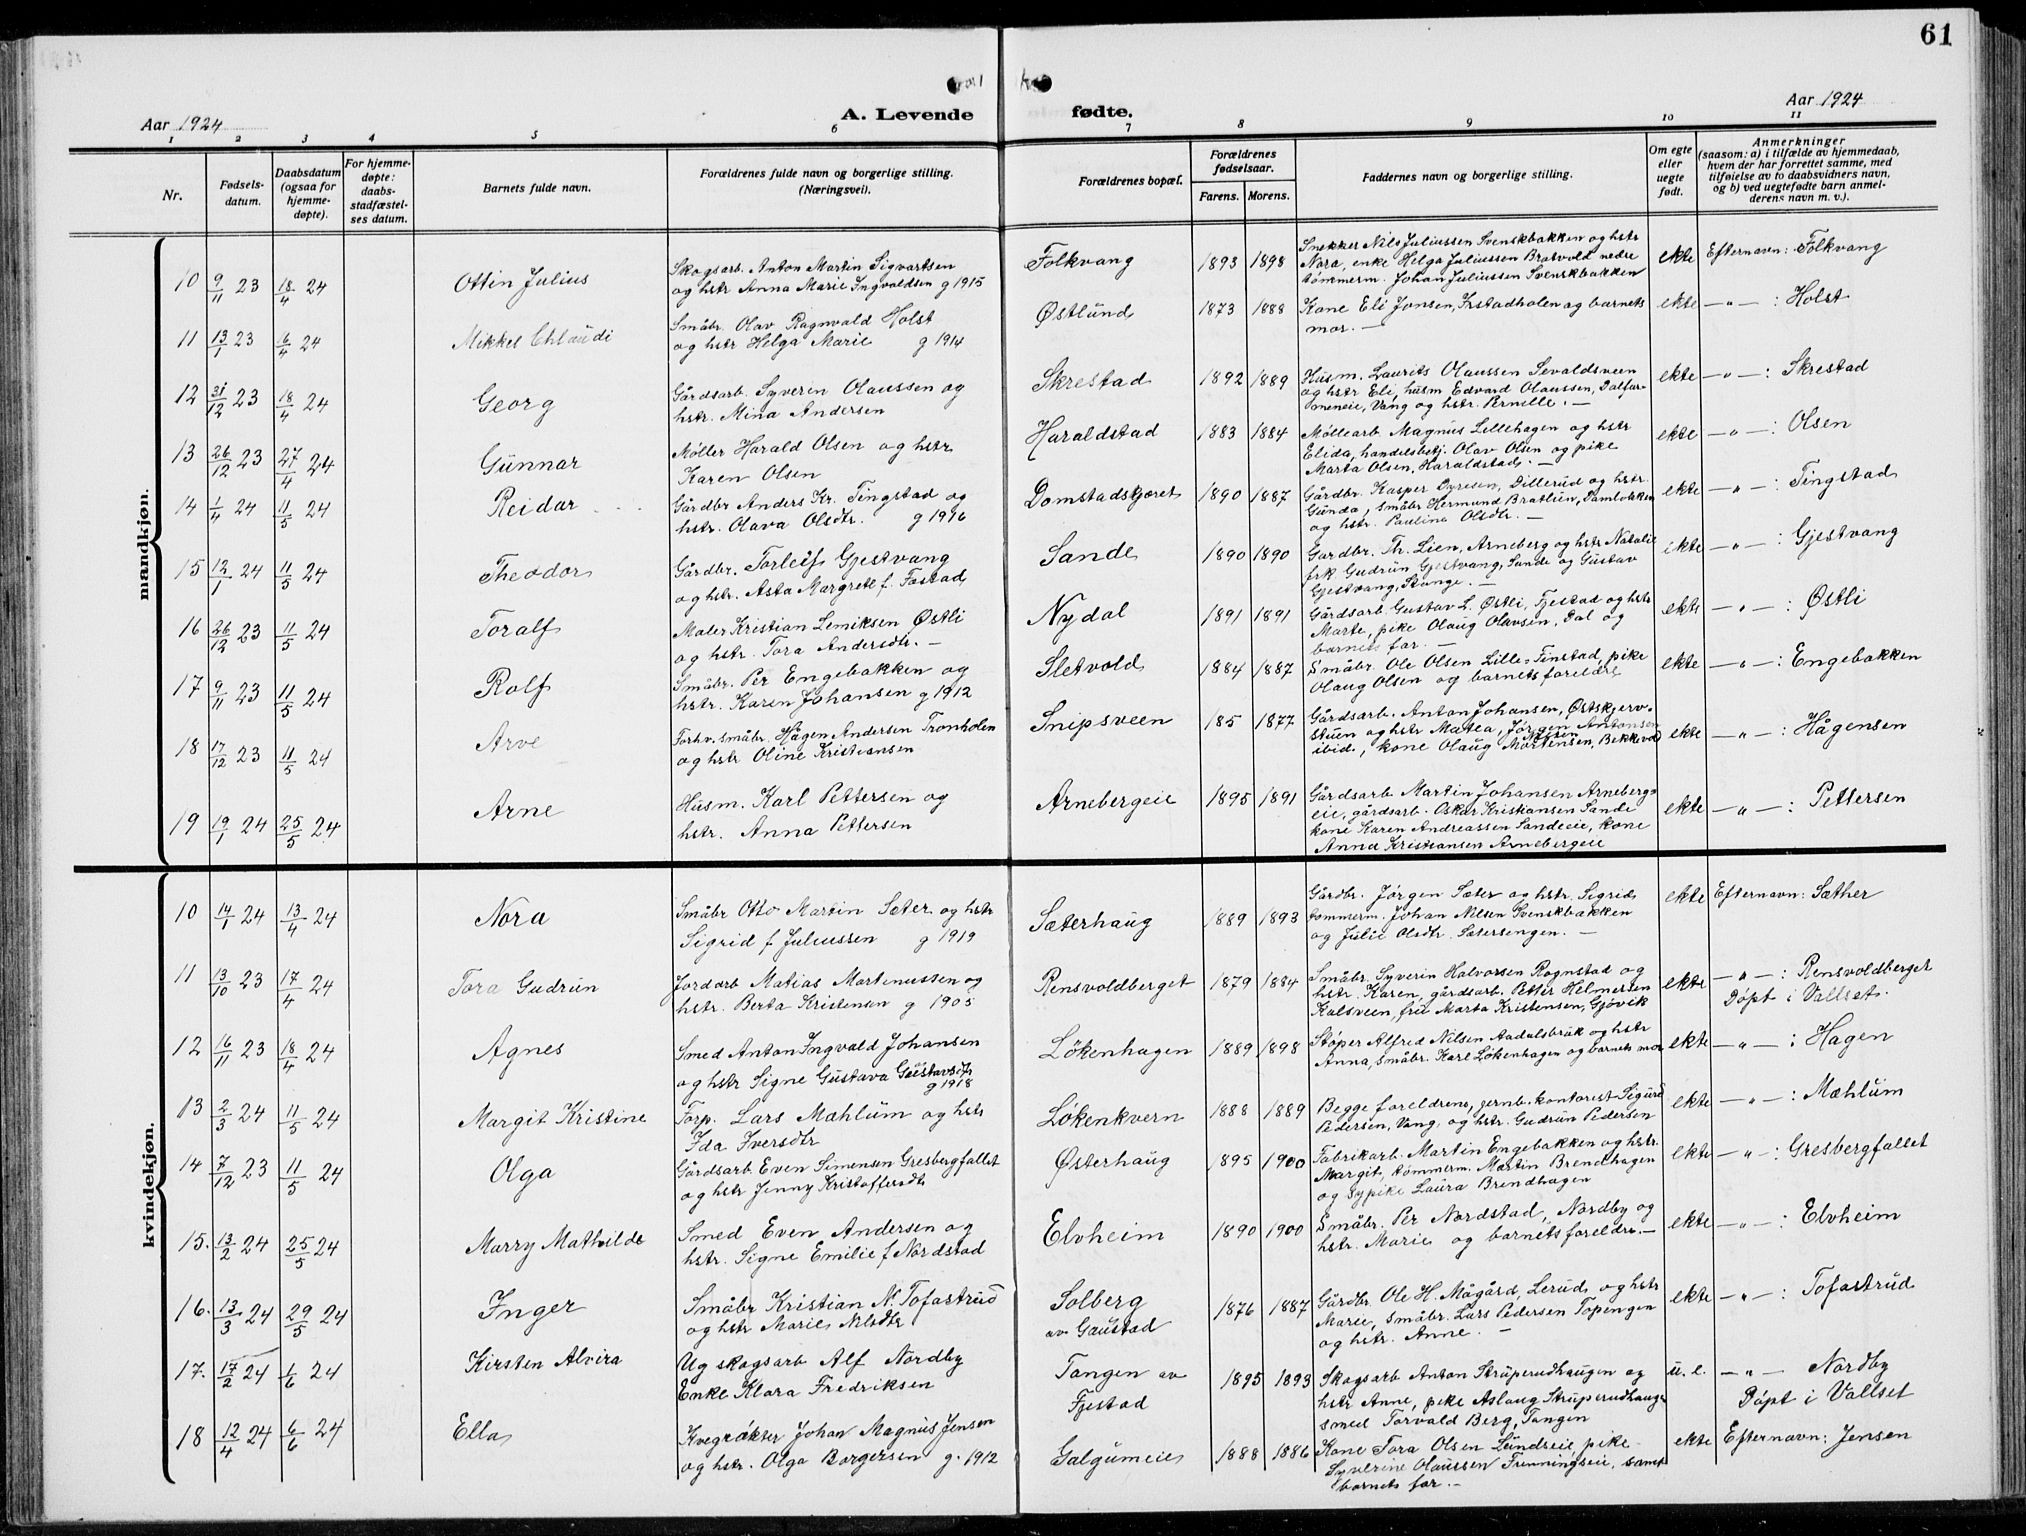 61
Aar 1924
A. Levende fødte.
Aar 1924
1 2 3 4 5 6 7 8 9 10 11
Nr.
Fødsels-
datum.
Daabsdatum
(ogsaa for
hjemme-
døpte).
For hjemme-
døpte:
daabs-
stadfæstel-
ses datum.
Barnets fulde navn.
Forældrenes fulde navn og borgerlige stilling.
(Næringsvei).
Forældrenes bopæl.
Forældrenes
fødselsaar.
Farens. Morens.
Faddernes navn og borgerlige stilling.
Om egte
eller
uegte
født.
Anmerkninger
(saasom: a) i tilfælde av hjemmedaab,
hvem der har forrettet samme, med
tilføielse av to daabsvidners navn,
og b) ved uegtefødte barn anmel-
derens navn m. v.).
mandkjøn.
10 9/11 23 18/4 24 Ottin Julius
Skogsarb. Anton Martin Sigvartsen
og hstr Anna Marie Ingvaldsen g 1915
Folkvang 1893 1898
Snekker Nils Juliussen Svenskbakken og hstr
Nora, enke Helga Juliussen Bratvold nedre
tømmerm. Johan Juliussen Svenskbakken
ekte Efternavn: Folkvang
11 13/1 23 6/4 24 Mikkel Chlaudi
Småbr. Olav Ragnvald Holst
og hstr Helga Marie g 1914
Østlund 1873 1888
Kone Eli Jonsen, Irstadholen og barnets
mor. —
ekte —„— : Holst
12 31/12 23 18/4 24 Georg
Gårdsarb. Syverin Olaussen og
hstr. Mina Andersen
Skrestad 1892 1889
Husm. Laurits Olaussen Sevaldsveen
og hstr Eli, husm Edvard Olaussen, Dalfar-
meneie, Vang og hstr. Pernille. —
ekte —„— : Skrestad
13 26/12 23 27/4 24 Gunnar
Møller Harald Olsen og hstr
Karen Olsen
Haraldstad 1883 1884
Møllearb. Magnus Lillehagen og hstr
Elida, handelsbetj. Olav Olsen og pike
Marta Olsen, Haraldstad. —
ekte —„— : Olsen
14 1/4 24 11/5 24 Reidar
Gårdbr Anders Kr. Tingstad og
hstr. Olava Olsdtr. g 1916
Domstadskjæret 1890 1887
Gårdbr. Kasper Dyresen, Dillerud og hstr.
Gunda, småbr Hermund Bratlun,
og hstr. Pauline Olsdtr. —
ekte —„— : Tingstad
15 12/1 24 11/5 24 Theodor
Gårdbr. Torleif Gjestvang
og hstr. Asta Margrete f. Fæstad
Sande 1890 1890
Gardbr. Th. Lien, Arneberg og hstr Natalie
frk. Gudrun Gjestvang, Sande og Gustav
Gjestvang, Stange. —
ekte —„— : Gjestvang
16 26/12 23 11/5 24 Toralf
Maler Kristian Lemiksen Østli
og hstr. Tora Andersdtr. —
Nydal 1891 1891
Gårdsarb Gustav L. Østli, Fjestad og hstr
Marte, pike Olaug Olavsen, Dal og
barnets far. —
ekte —„— : Østli
17 9/11 23 11/5 24 Rolf
Småbr. Per Engebakken og
hstr. Karen Johansen g 1912
Sletvold 1884 1887
Småbr. Ole Olsen Lille-Finstad, pike
Olaug Olsen og barnets foreldre
ekte —„— : Engebakken
18 17/12 23 11/5 24 Arve
Forhv. småbr. Hågen Andersen Tronholen
og hstr Oline Kristiansen
Snipsveen 185 1877
Gårdsarb. Anton Johansen, Østskjerv-
stuen og hstr Matea, Jørgen Antonsen
ibid., kone Olaug Mortensen, Bekkevold
ekte —„— : Hågensen
19 19/1 24 25/5 24 Arne
Husm. Karl Pettersen og
hstr. Anna Pettersen
Arnebergeie 1895 1891
Gårdsarb Martin Johansen Arnebergs-
eie, gårdsarb. Oskar Kristiansen Sande
kone Karen Andreassen Sandeeie, kone
Anna Kristiansen Arnebergeie
ekte —„— : Pettersen
kvindekjøn.
10 14/1 24 13/4 24 Nora
Småbr Otto Martin Sæter og hstr
Sigrid f Juliussen g 1919
Sæterhaug 1889 1893
Gårdbr. Jørgen Sæter og hstr. Sigrid
tømmerm. Johan Nilsen Svenskbakken
og Julie Olsdtr. Sætersengen. —
ekte Efternavn: Sæther
11 13/10 23 17/4 24 Tora Gudrun
Jordarb Matias Martinussen og
hstr. Berta Kristensen g 1905
Rensvoldberget 1879 1884
Småbr. Syverin Halvorsen Rognstad og
hstr. Karen, gårdsarb. Petter Helmersen
Kalsveen, fru Marta Kristensen, Gjøvik
ekte —„— : Rensvoldberget
Døpt i Vallset.
12 16/11 23 18/4 24 Agnes
Smed Anton Ingvald Johansen
og hstr Signe Gustava Gustavsdtr
g 1918
Løkenhagen 1889 1898
Støper Alfred Nilsen Aadalsbruk og hstr
Anna, småbr. Karl Løkenhagen og barnets mor
ekte —„— : Hagen
13 2/3 24 11/5 24 Margit Kristine
Torp. Lars Mæhlum og hstr
Ida Iversdtr
Løkenkvern 1888 1889
Begge foreldrene, jernb. kontorist Sigurd
Pedersen, Vang, og hstr. Gudrun Pedersen
ekte —„— : Mæhlum
14 7/12 23 11/5 24 Olga
Gårdsarb Even Simensen Gresbergfallet
og hstr Jenny Kristoffersdtr
Østerhaug 1895 1900
Fabrikarb. Martin Engebakken og hstr.
Margit, tømmerm. Martin Brendhagen
og sypike Laura Brendhagen
ekte —„— : Gresbergfallet
15. 13/2 24 25/5 24 Marry Mathilde
Smed Even Andersen og
hstr. Signe Emilie f Nordstad
Elvheim 1890 1900
Småbr. Per Nordstad, Nordby og
hstr. Marie og barnets foreldre. —
ekte —„— : Elvheim
16. 13/3 24 29/5 24 Inger
Småbr Kristian N. Tofastrud
og hstr Marie Nilsdtr
Solberg
av Gaustad 1876 1887
Gårdbr. Ole H. Mågård, Lerud, og hstr
Marie, småbr. Lars Pedersen Topengen
og hstr. Anne. —
ekte —„— : Tofastrud
17. 17/2 24 1/6 24 Kirsten Alvira
Ug skogsarb Alf Nordby
Enke Klara Fredriksen
Tangen av
Fjestad 1895 1893
Skogsarb Anton Struperudhaugen og
hstr Anne, pike Aslaug Struperudhaugen
smed Torvald Berg, Tangen
u. e. —„— Nordby
Døpt i Vallset
18 12/4 24 6/6 24 Ella
Kvegrøkter Johan Magnus Jensen
og hstr. Olga Borgersen g. 1912
Galgumeie 1888 1886
Kone Tora Olsen Lundseie, pike
Syverine Olaussen Frenningseie, samt
barnets far. —
ekte Efternavn: Jensen